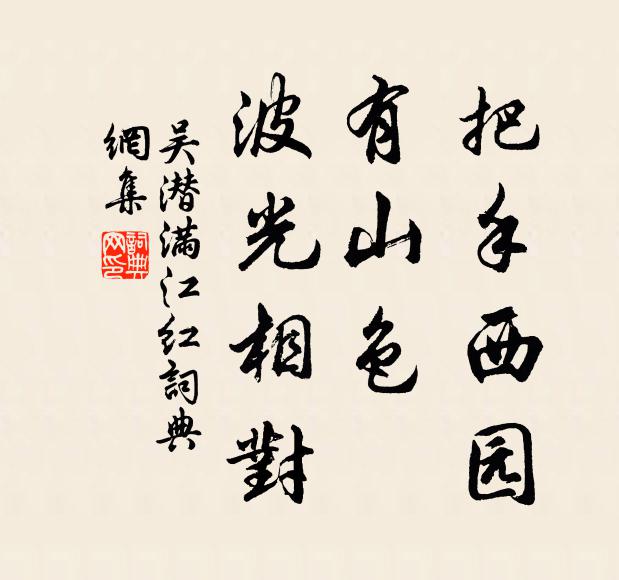 把手西园
有山色
波光相對
吴潜满江红詞典
網集
詞典
网印